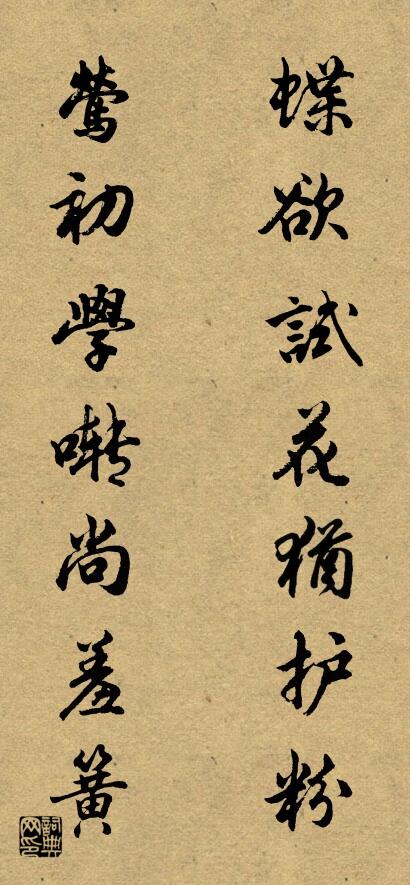 蝶欲試花猶护粉
鶯初學囀尚羞簧
詞典網印